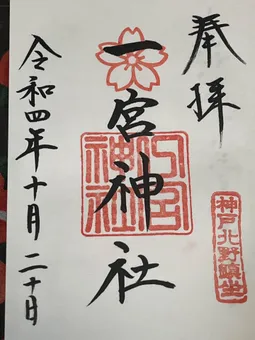 奉拝
一宮神社
令和四年十月二十日
神戸北野鎮坐